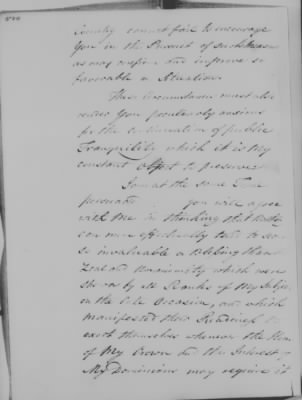 Country cannot fail to encourage
You in the Pursuit of such Measures
as may confirm and improve so
favorable a Situation.
These Circumstances must also
render You peculiarly anxious
for the continuation of public
Tranquility which it is My
constant Object to preserve
I am at the same Time
persuaded You will agree
with Me in thinking that nothing
can more effectually tend to secure
so invaluable a blessing than
Zeal and Unanimity which were
shown by all Ranks of My Subjects
on the late Occasion, and which
manifested their Readiness to
exert themselves whenever the Honor
of My Crown and the Interest of
My Dominions may require it